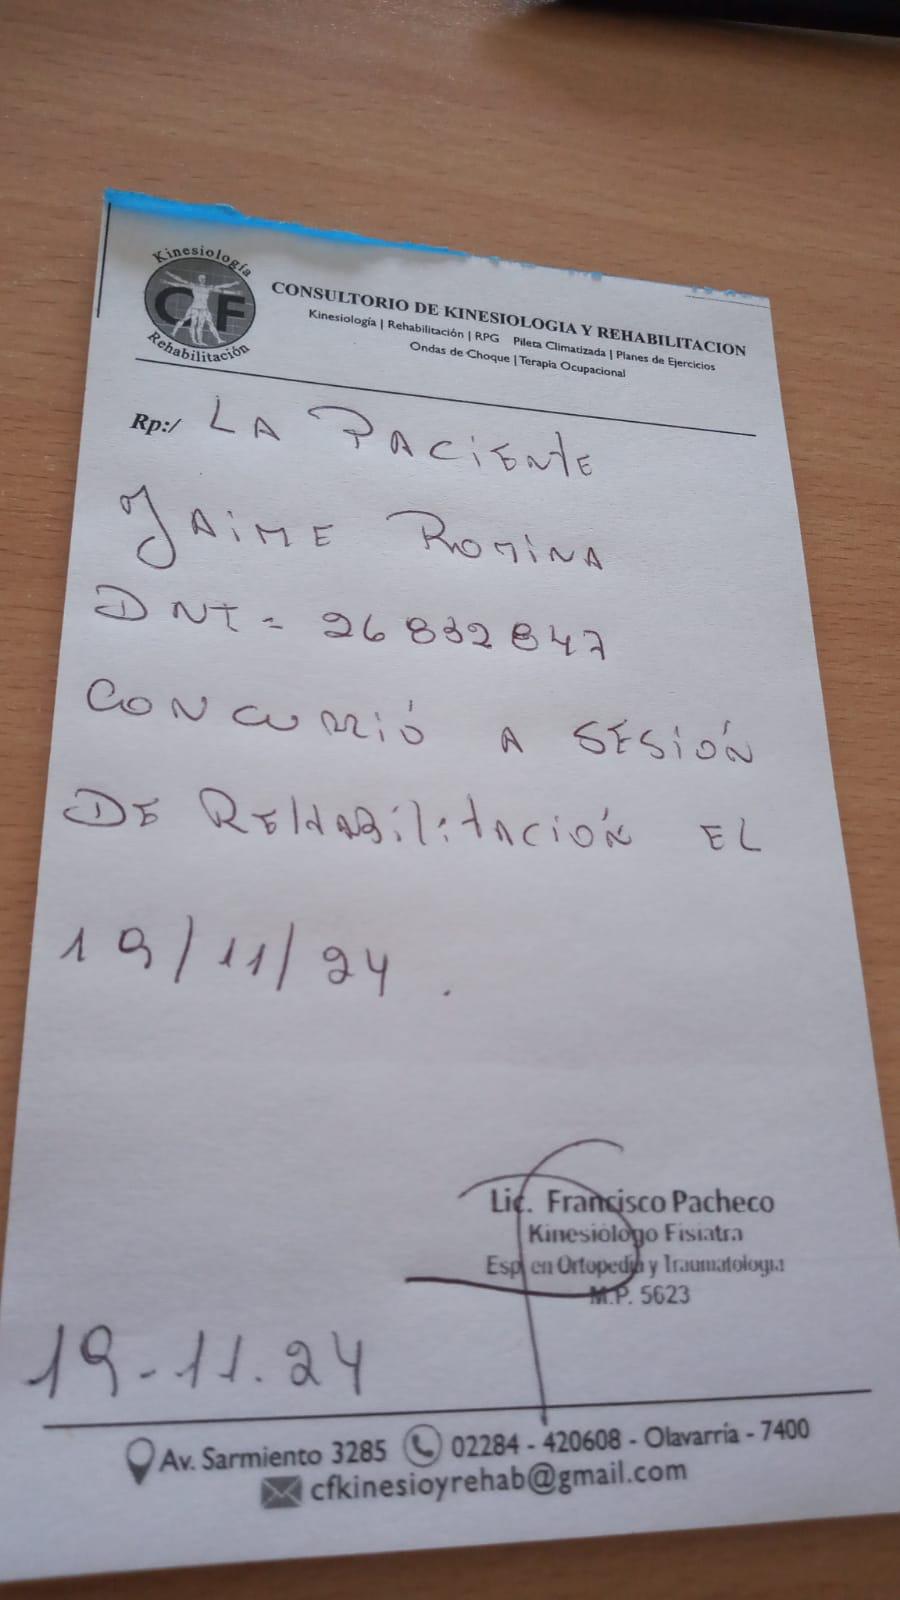 Kinesiología
CF
Rehabilitación
CONSULTORIO DE KINESIOLOGIA Y REHABILITACION
Kinesiología | Rehabilitación | RPG Pileta Climatizada | Planes de Ejercicios
Ondas de Choque | Terapia Ocupacional
Rp:/ LA PACIENTE
JAIME ROMINA
DNI = 26832847
CONCURRIÓ A SESIÓN
DE REHABILITACIÓN EL
19/11/24.
Lic. Francisco Pacheco
Kinesiólogo Fisiatra
Esp en Ortopedia y Traumatología
M.P. 5623
19-11.24
Av. Sarmiento 3285 02284 - 420608 - Olavarría - 7400
cfkinesioyrehab@gmail.com